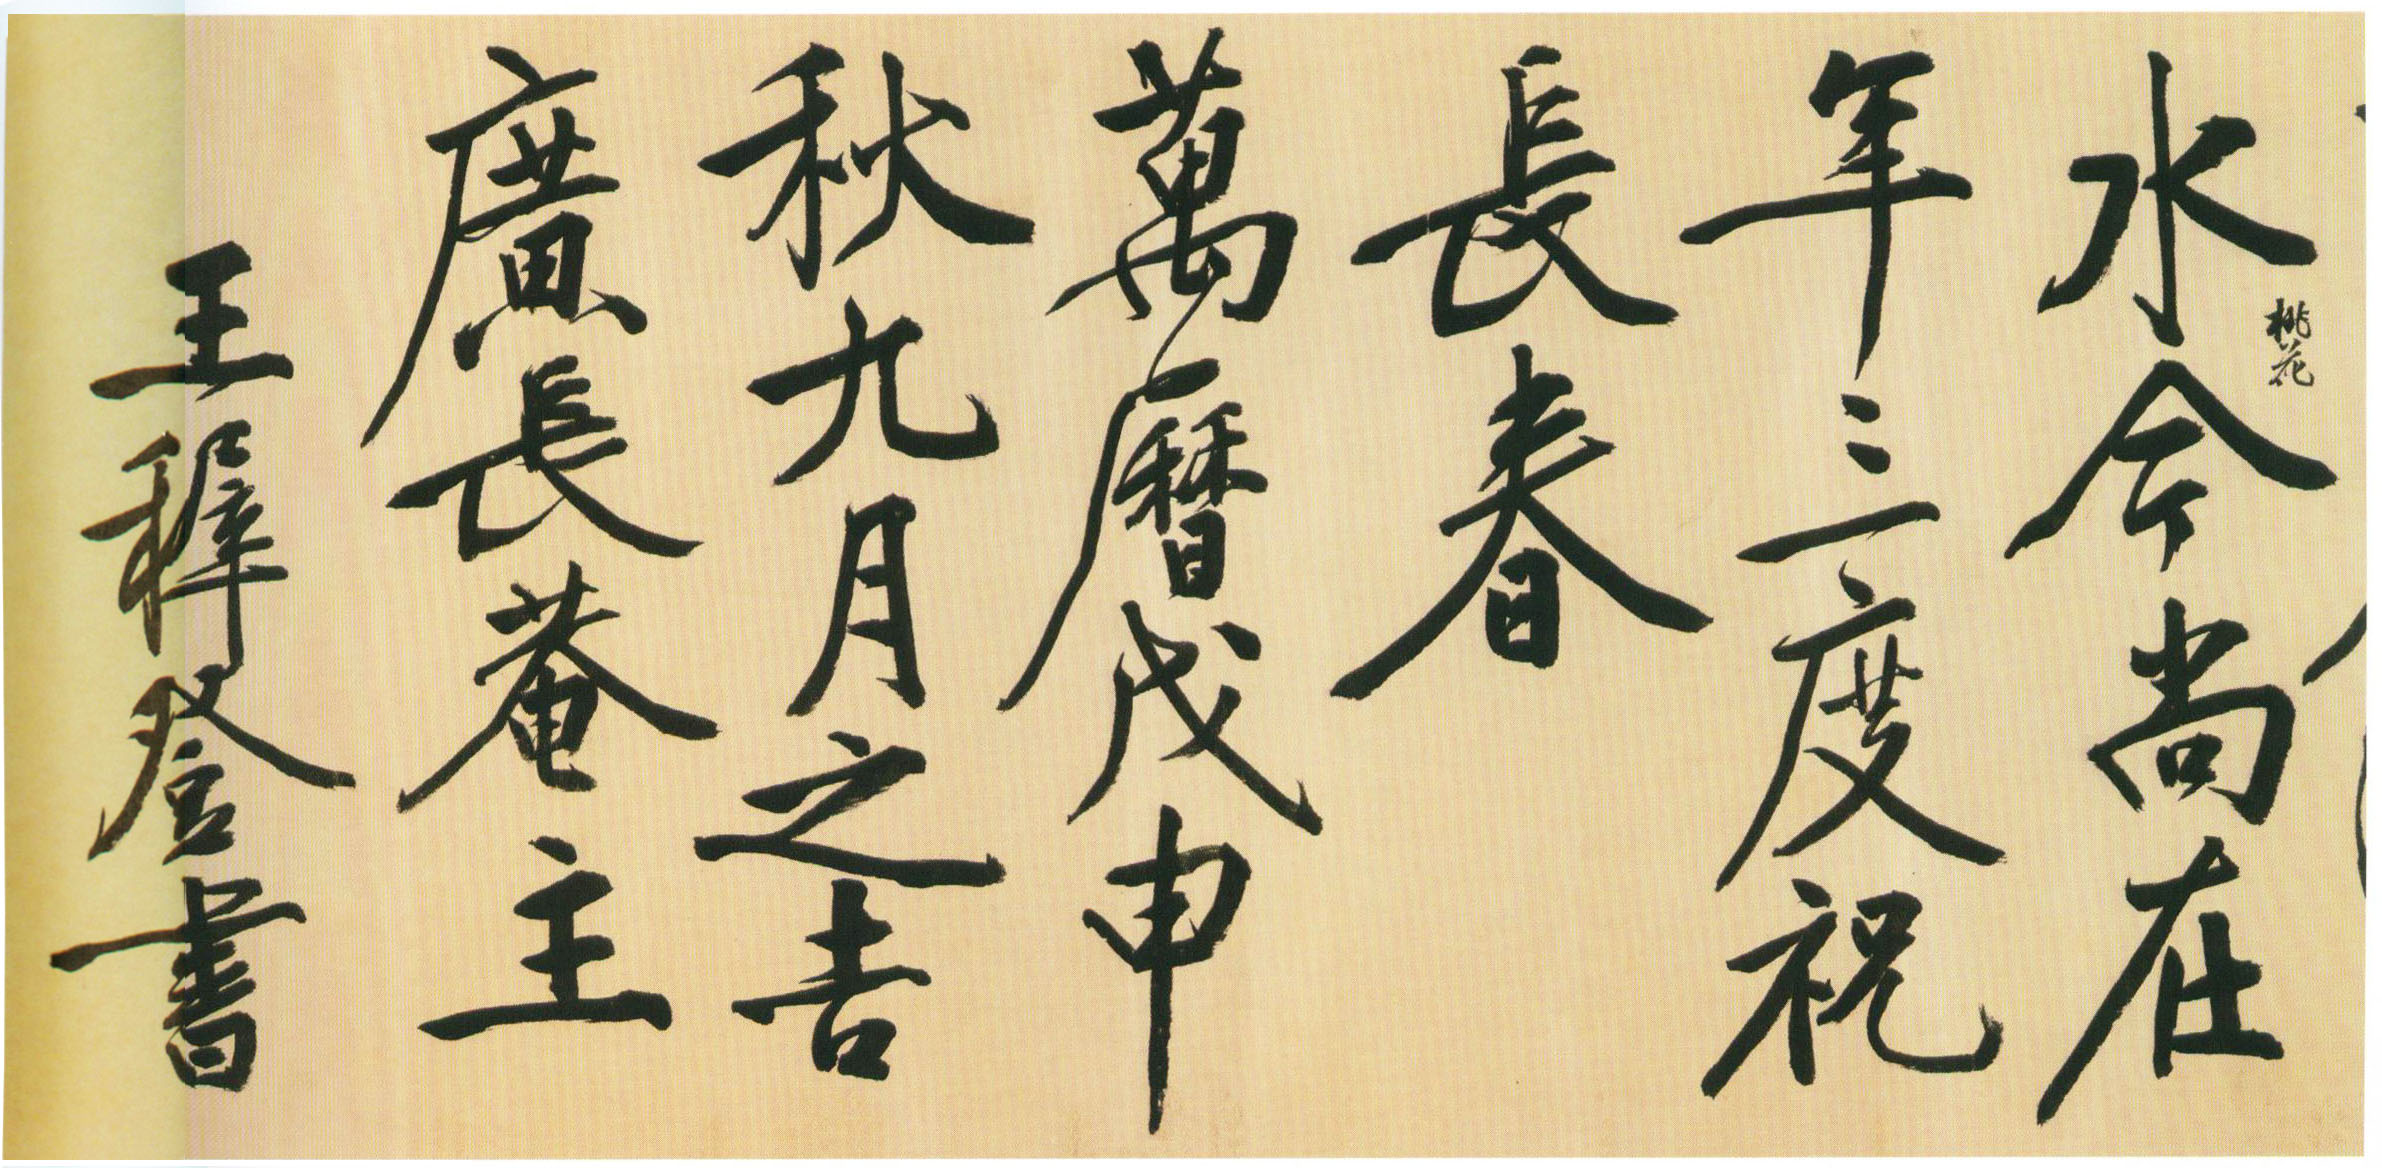 水桃花今尚在
年三度祝
長春
萬曆戊申
秋九月之吉
廣長菴主
王穉登書